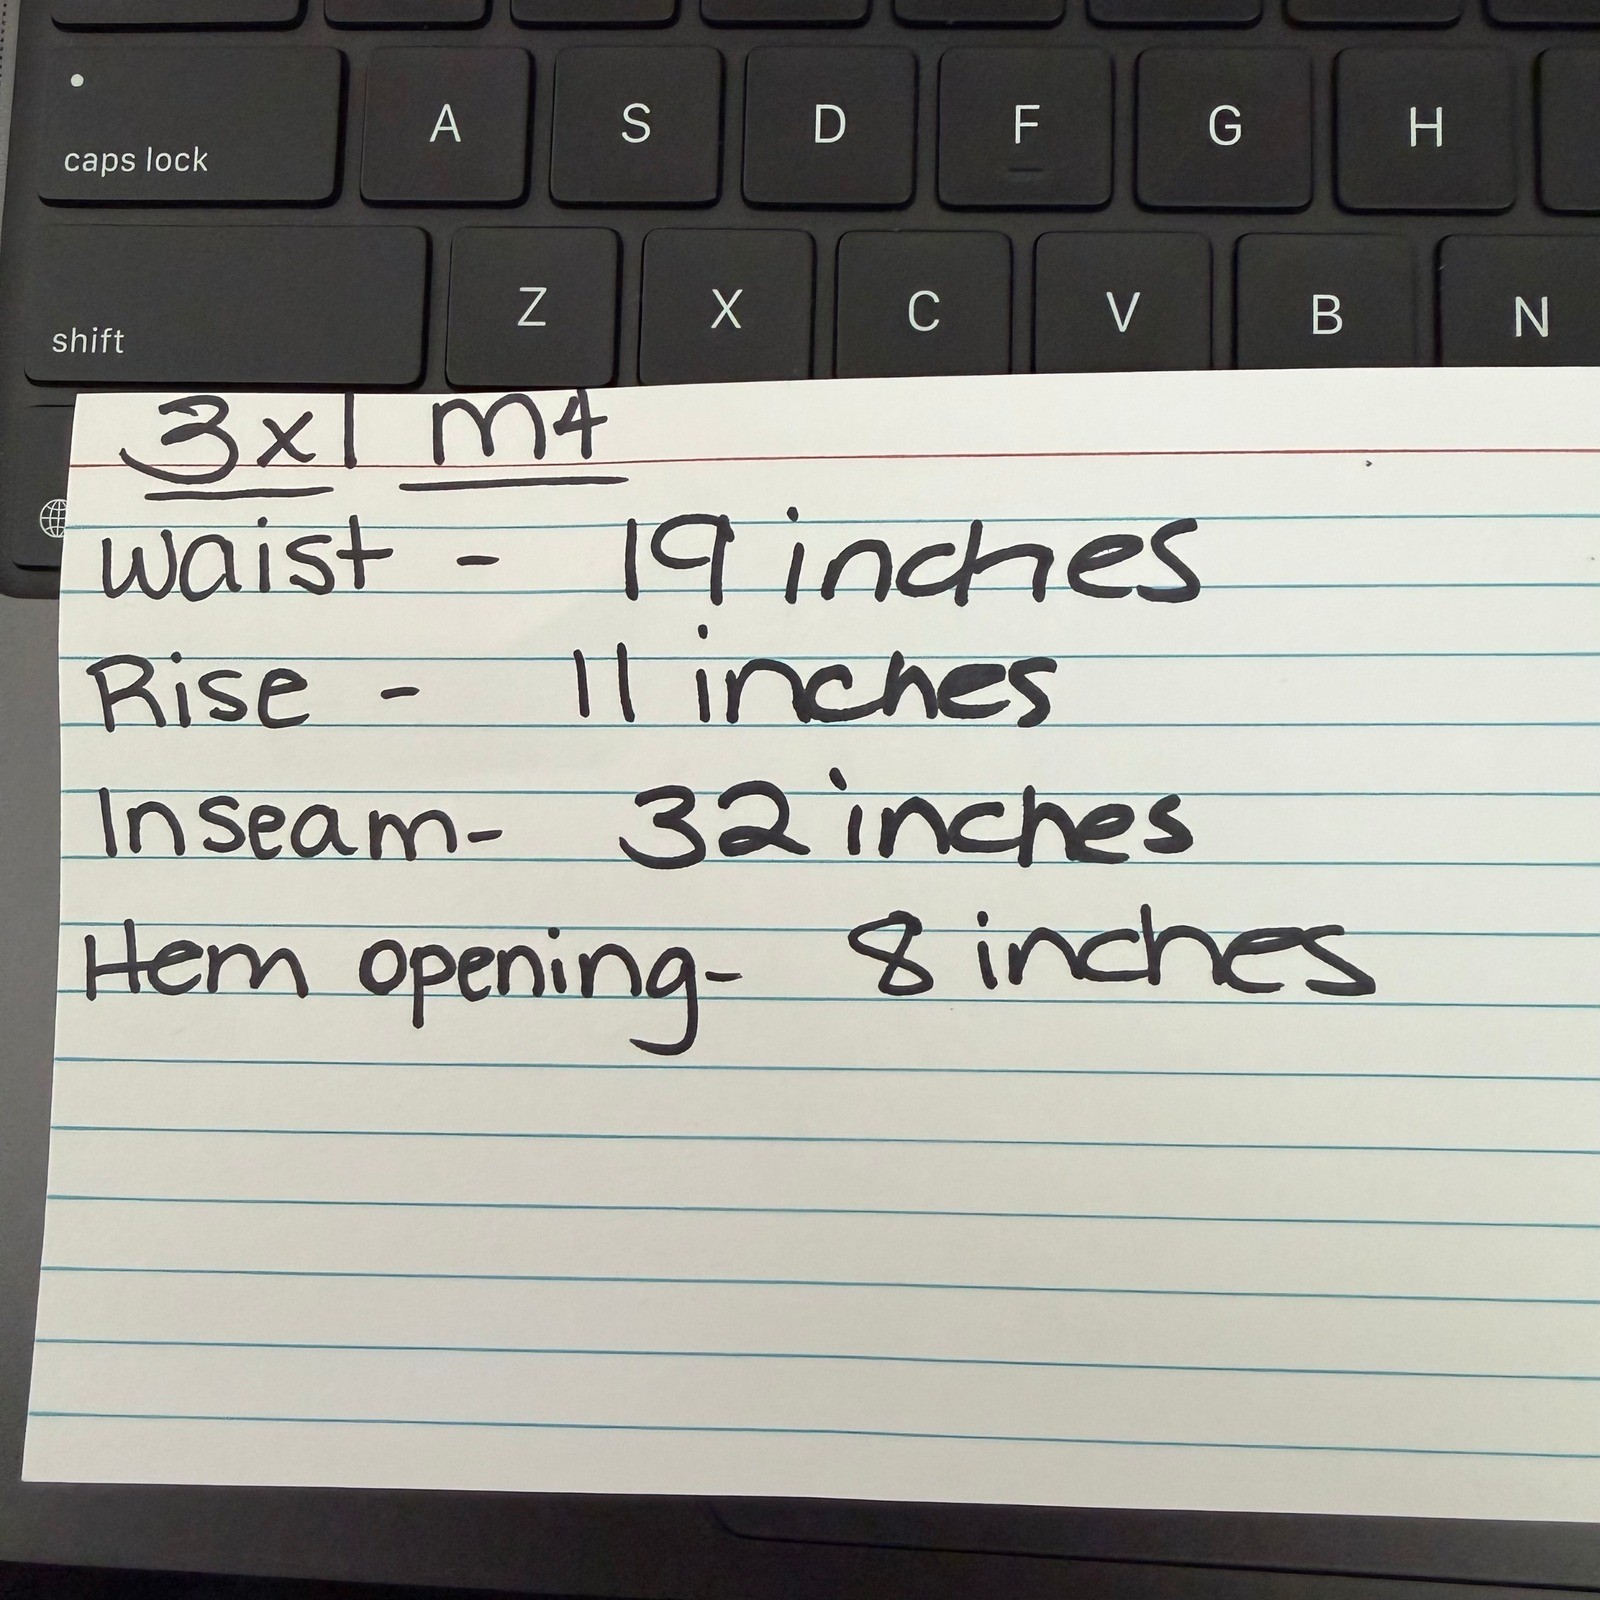 caps lock A S D F G H
shift Z X C V B N
3x1 m4
Waist - 19 inches
Rise - 11 inches
Inseam- 32 inches
Hem opening- 8 inches